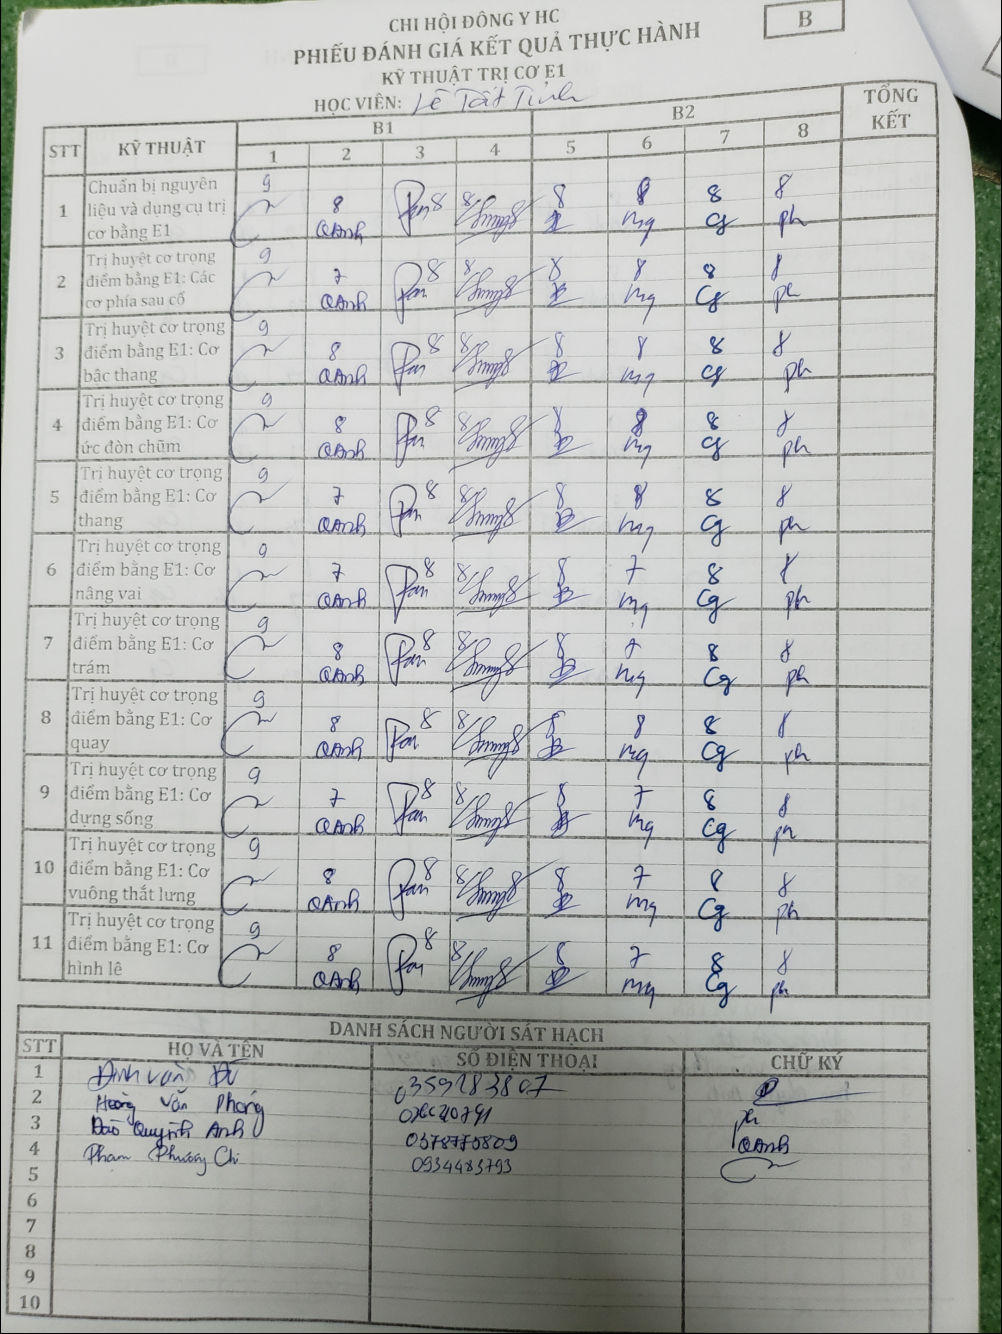 CHI HỘI ĐÔNG Y HC
B
PHIẾU ĐÁNH GIÁ KẾT QUẢ THỰC HÀNH
KỸ THUẬT TRỊ CƠ E1
HỌC VIÊN: Lê Tất Tịnh
STT KỸ THUẬT B1 B2 TỔNG KẾT
1 2 3 4 5 6 7 8
1 Chuẩn bị nguyên liệu và dụng cụ trị cơ bằng E1 9 8 QAnh 8 8 8 8 8 mq 8 Cg 8 ph
2 Trị huyệt cơ trọng điểm bằng E1: Các cơ phía sau cổ 9 7 QAnh 8 8 8 8 8 mq 8 Cg 8 ph
3 Trị huyệt cơ trọng điểm bằng E1: Cơ bậc thang 9 8 QAnh 8 8 8 8 8 mq 8 Cg 8 ph
4 Trị huyệt cơ trọng điểm bằng E1: Cơ ức đòn chũm 9 8 QAnh 8 8 8 8 8 mq 8 Cg 8 ph
5 Trị huyệt cơ trọng điểm bằng E1: Cơ thang 9 7 QAnh 8 8 8 8 8 mq 8 Cg 8 ph
6 Trị huyệt cơ trọng điểm bằng E1: Cơ nâng vai 9 7 QAnh 8 8 8 8 7 mq 8 Cg 8 ph
7 Trị huyệt cơ trọng điểm bằng E1: Cơ trám 9 8 QAnh 8 8 8 8 7 mq 8 Cg 8 ph
8 Trị huyệt cơ trọng điểm bằng E1: Cơ quay 9 8 QAnh 8 8 8 8 8 mq 8 Cg 8 ph
9 Trị huyệt cơ trọng điểm bằng E1: Cơ dựng sống 9 7 QAnh 8 8 8 8 7 mq 8 Cg 8 ph
10 Trị huyệt cơ trọng điểm bằng E1: Cơ vuông thắt lưng 9 8 QAnh 8 8 8 8 7 mq 8 Cg 8 ph
11 Trị huyệt cơ trọng điểm bằng E1: Cơ hình lê 9 8 QAnh 8 8 8 8 7 mq 8 Cg 8 ph
DANH SÁCH NGƯỜI SÁT HẠCH
STT HỌ VÀ TÊN SỐ ĐIỆN THOẠI CHỮ KÝ
1 Đinh Văn 0359283807
2 Hoàng Văn Phong ph
3 Đào Quỳnh Anh QAnh
4 Phạm Phương Chi 0934483793
5
6
7
8
9
10